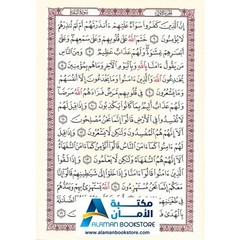 سُورَةُ البَقَرَةِ
الجُزْءُ الأَوَّلُ
إِنَّ ٱلَّذِينَ كَفَرُوا۟ سَوَآءٌ عَلَيْهِمْ ءَأَنذَرْتَهُمْ أَمْ لَمْ تُنذِرْهُمْ
لَا يُؤْمِنُونَ ٦ خَتَمَ ٱللَّهُ عَلَىٰ قُلُوبِهِمْ وَعَلَىٰ سَمْعِهِمْ وَعَلَىٰٓ
أَبْصَٰرِهِمْ غِشَٰوَةٌ وَلَهُمْ عَذَابٌ عَظِيمٌ ٧ وَمِنَ ٱلنَّاسِ
مَن يَقُولُ ءَامَنَّا بِٱللَّهِ وَبِٱلْيَوْمِ ٱلْءَاخِرِ وَمَا هُم بِمُؤْمِنِينَ ٨
يُخَٰدِعُونَ ٱللَّهَ وَٱلَّذِينَ ءَامَنُوا۟ وَمَا يَخْدَعُونَ إِلَّآ أَنفُسَهُمْ
وَمَا يَشْعُرُونَ ٩ فِى قُلُوبِهِم مَّرَضٌ فَزَادَهُمُ ٱللَّهُ مَرَضًا
وَلَهُمْ عَذَابٌ أَلِيمٌۢ بِمَا كَانُوا۟ يَكْذِبُونَ ١٠ وَإِذَا قِيلَ لَهُمْ
لَا تُفْسِدُوا۟ فِى ٱلْأَرْضِ قَالُوٓا۟ إِنَّمَا نَحْنُ مُصْلِحُونَ ١١
أَلَآ إِنَّهُمْ هُمُ ٱلْمُفْسِدُونَ وَلَٰكِن لَّا يَشْعُرُونَ ١٢ وَإِذَا قِيلَ
لَهُمْ ءَامِنُوا۟ كَمَآ ءَامَنَ ٱلنَّاسُ قَالُوٓا۟ أَنُؤْمِنُ كَمَآ ءَامَنَ ٱلسُّفَهَآءُ
أَلَآ إِنَّهُمْ هُمُ ٱلسُّفَهَآءُ وَلَٰكِن لَّا يَعْلَمُونَ ١٣ وَإِذَا لَقُوا۟
ٱلَّذِينَ ءَامَنُوا۟ قَالُوٓا۟ ءَامَنَّا وَإِذَا خَلَوْا۟ إِلَىٰ شَيَٰطِينِهِمْ قَالُوٓا۟
إِنَّا مَعَكُمْ إِنَّمَا نَحْنُ مُسْتَهْزِءُونَ ١٤ ٱللَّهُ يَسْتَهْزِئُ بِهِمْ وَيَمُدُّهُمْ
مكتبة
الأمان
ALAMAN BOOKSTORE
www.alamanbookstore.com